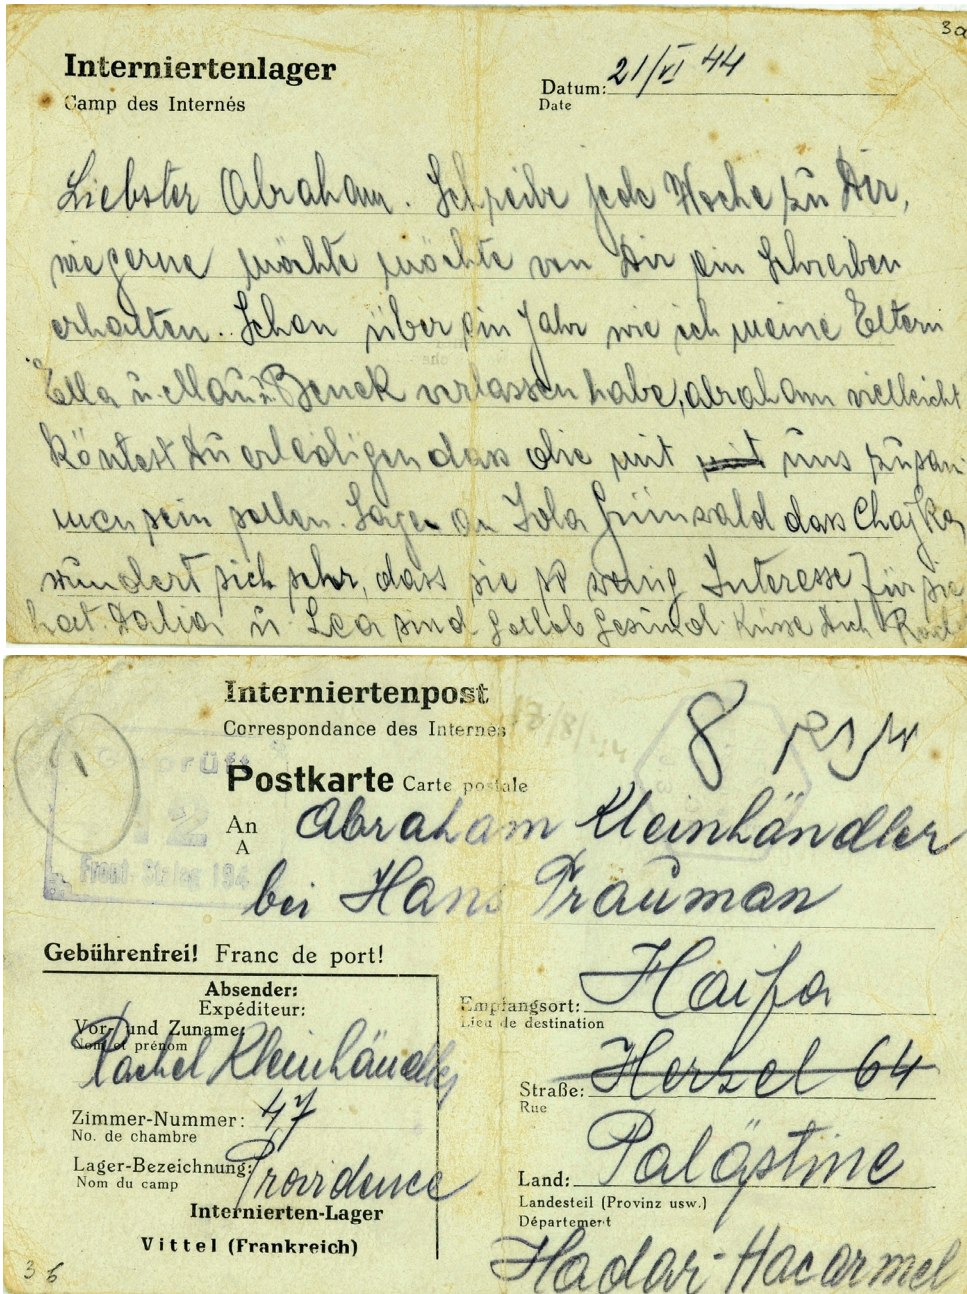 3a
Interniertenlager
Camp des Internés
Datum: 21/VI 44
Date
Liebster Abraham. Schreibe jede Woche zu Dir,
wie gerne möchte möchte von Dir ein Schreiben
erhalten. Schon über ein Jahr wie ich meine Eltern
Ella u. Max u. Benek verlassen habe, abraham vielleicht
köntest Du erledigen dass die mit mit uns zusam
men sein sollen. Sage an Lola Grünwald dass Chajka
wundert sich sehr, dass sie so wenig Interesse für sie
hat. Dalia u. Lea sind gottlob gesund. Küsse Dich
Interniertenpost
Correspondance des Internés
Postkarte Carte postale
Geprüft
12
Front-Stalag 194
An Abraham Kleinhändler
A
bei Hans Trauman
Gebührenfrei! Franc de port!
Absender:
Expéditeur:
Vor- und Zuname:
Nom et prénom
Rachel Kleinhändler
Zimmer-Nummer: 47
No. de chambre
Lager-Bezeichnung: Providence
Nom du camp
Internierten-Lager
Vittel (Frankreich)
Empfangsort: Haifa
Lieu de destination
Straße: Herzel 64
Rue
Land: Palästine
Landesteil (Provinz usw.)
Département
Hadar-Hacarmel
3 b